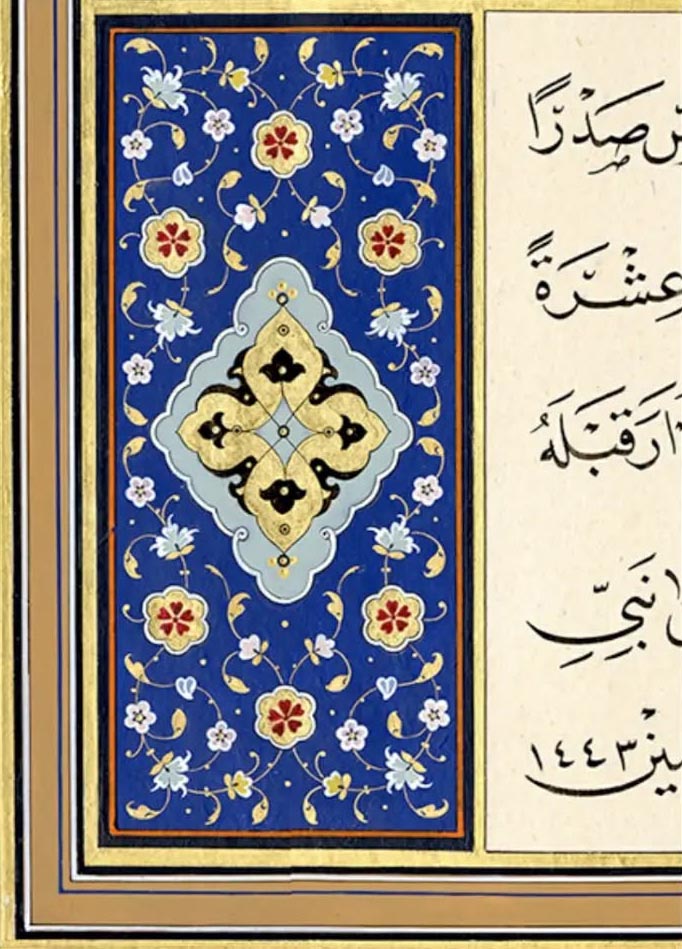 صَدْرًا
عِشْرَةً
اَرَ قَبْلَهُ
نَبِيِّ
١٤٤٣